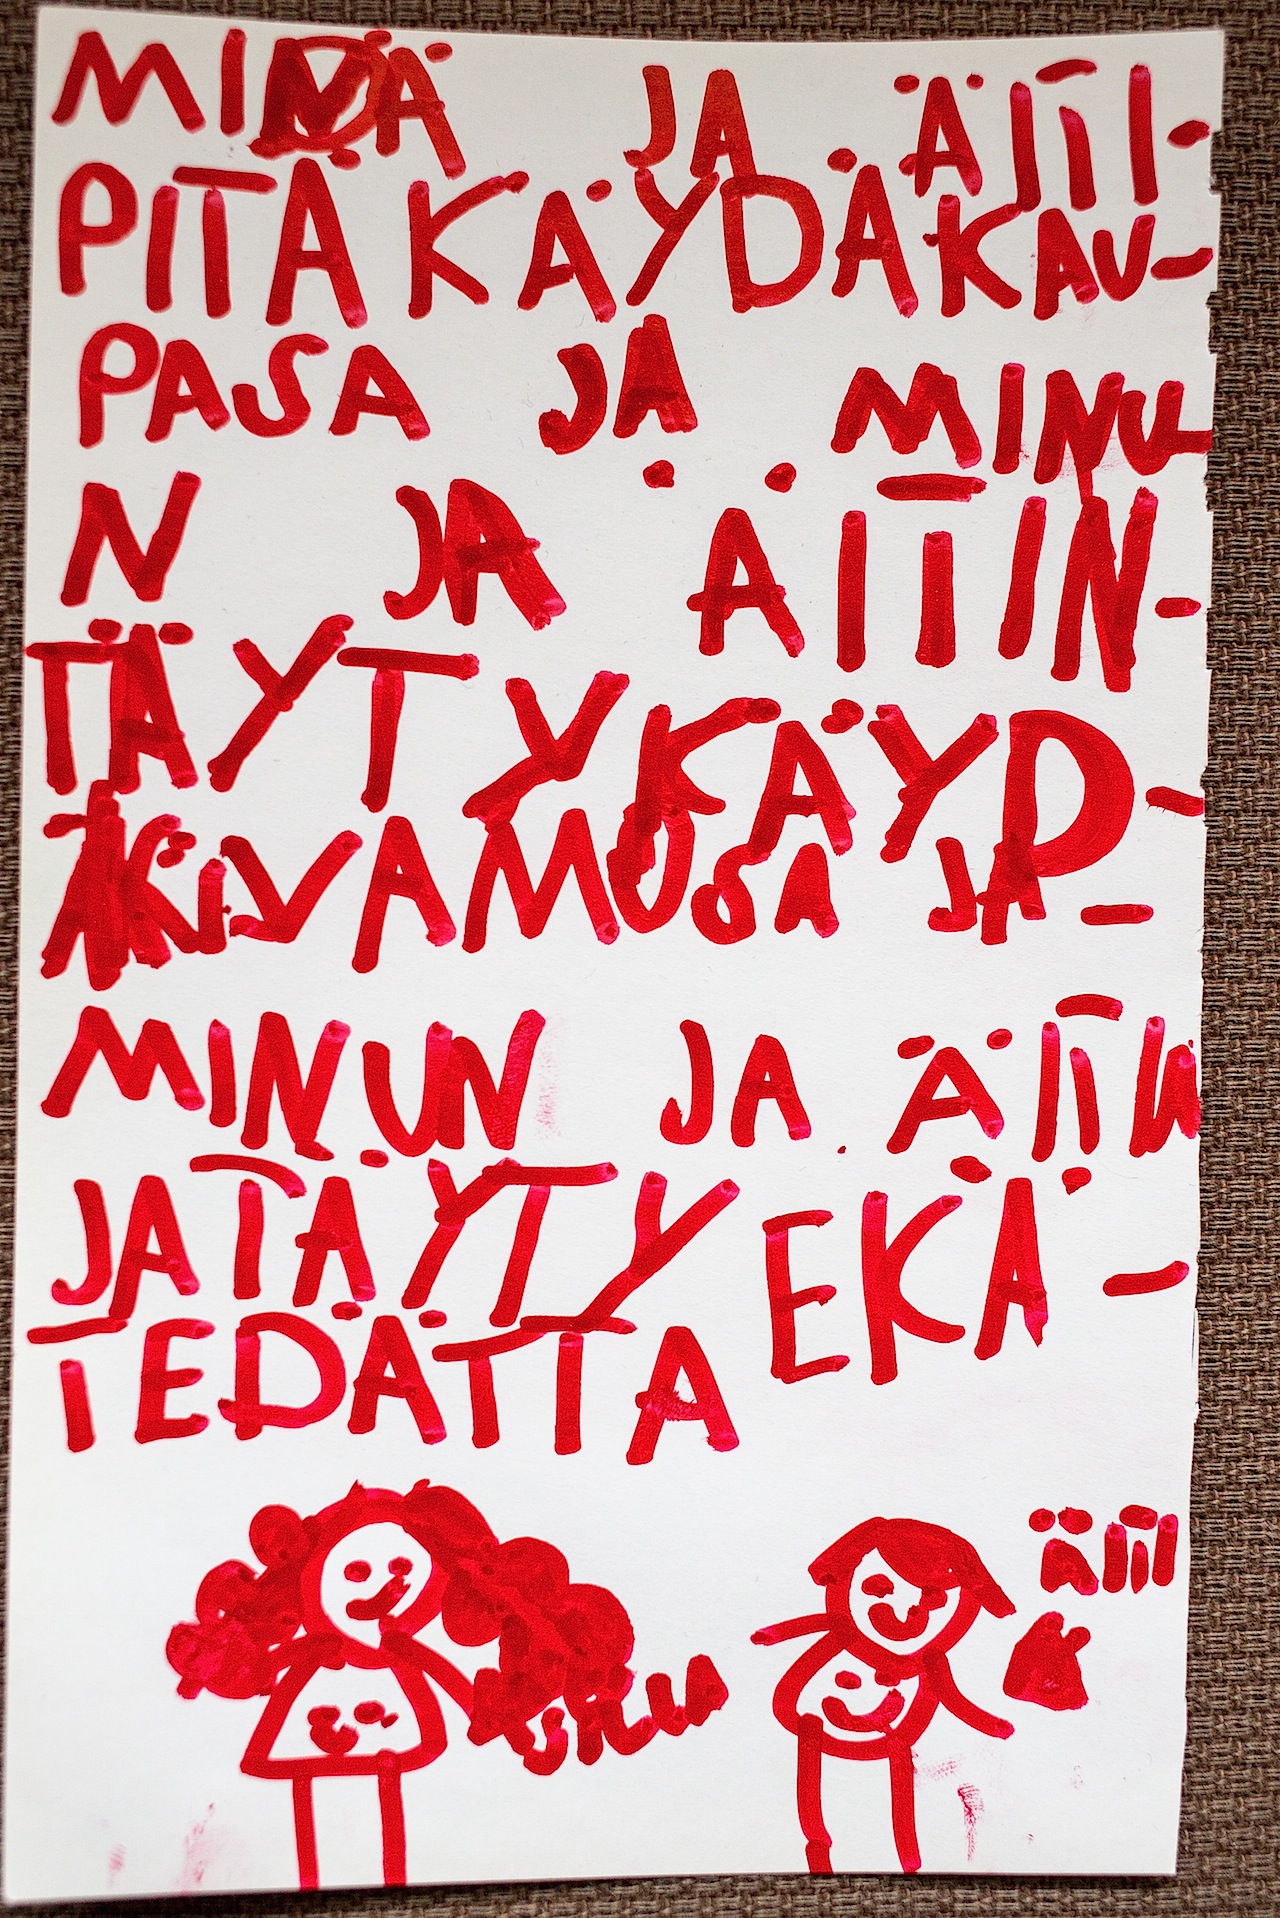 MINÄ JA ÄITI-
PITÄ KÄYDÄ KAU-
PASA JA MINU-
N JA ÄITIN-
TÄYTY KÄYD-
ÄKIVAMOSA JA -
MINUN JA ÄITIN
JA TÄYTY EKÄ-
TEDÄTTA
ÄITI